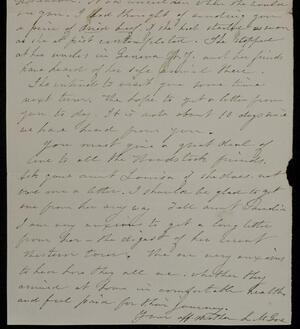 on you. I had thought of sending you
a piece of dried beef
as she at first contemplated. She stopped
at his uncle's in Geneva N.Y. and her friends
have heard of her safe arrival there.
She intends to visit you some time
next term. We hope to get a letter from
you to day. It is now about 10 days since
we have heard from you.
You must give a great deal of
love to all the Woodstock friends.
Ask Aunt Louisa if she does not
owe me a letter. I should be glad to get
one from her any way. Tell Aunt
I am very anxious to get a long letter
from her - the digest of her recent
Western tour. We are very anxious
to hear how they all are, whether they
arrived at home in comfortable health
and feel paid for their journey.
Your aff. mother L. M.